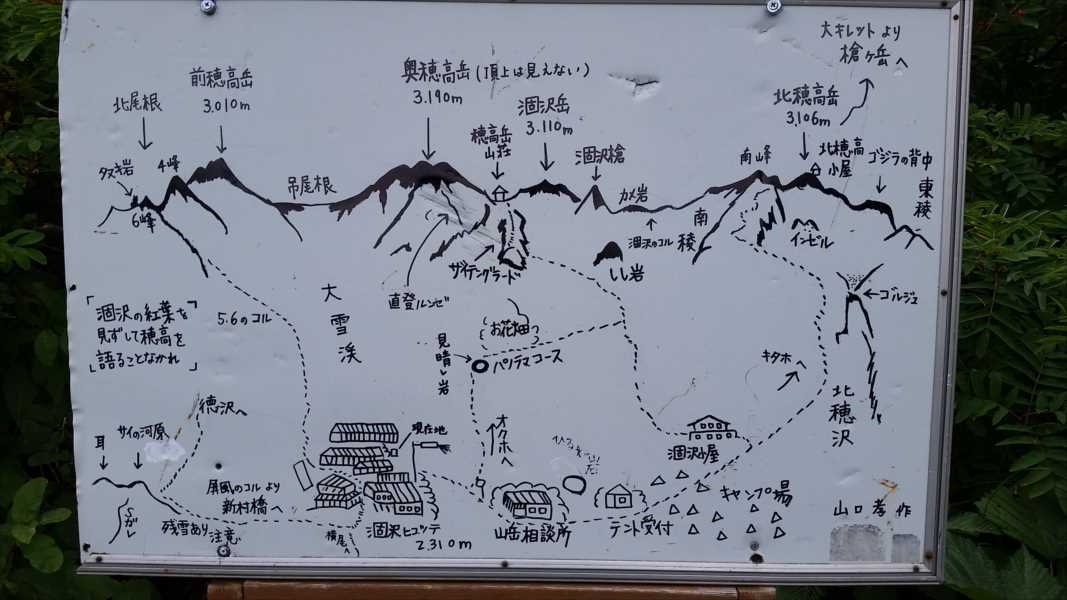 大キレットより
槍ヶ岳へ
北尾根
前穂高岳
3.010m
奥穂高岳(頂上は見えない)
3.190m
穂高岳
山荘
涸沢岳
3.110m
涸沢槍
北穂高岳
3.106m
南峰
北穂高
小屋
ゴジラの背中
東稜
タヌキ岩
4峰
6峰
吊尾根
カメ岩
涸沢のコル
南稜
インゼル
ザイテングラード
しし岩
直登ルンゼ
ゴルジュ
「涸沢の紅葉を
見ずして穂高を
語ることなかれ」
5.6のコル
大雪渓
お花畑
見晴し岩
パノラマコース
キタホへ
北穂沢
徳沢へ
耳
サイの河原
現在地
オクホへ
涸沢小屋
屏風のコルより
新村橋へ
残雪あり注意
涸沢ヒュッテ
2.310m
横尾へ
山岳相談所
テント受付
キャンプ場
山口孝作